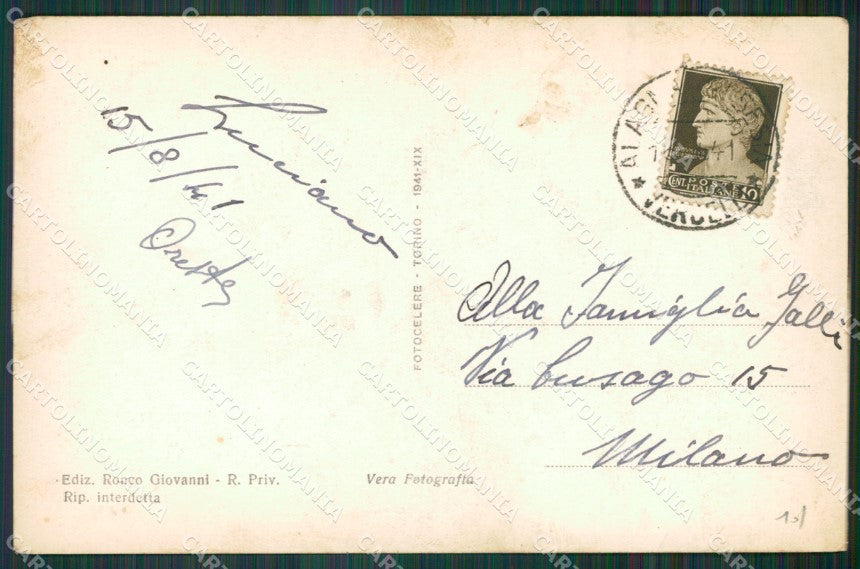 Luciano
15/8/41
Oretta
FOTOCELERE - TORINO - 1941-XIX
Ediz. Ronco Giovanni - R. Priv.
Rip. interdetta
Vera Fotografia
ALAGNA
41
VERCELLI
CENT. POSTE
ITALIANE 10
Alla Famiglia Galli
Via Cusago 15
Milano
CARTOLINOMANIA